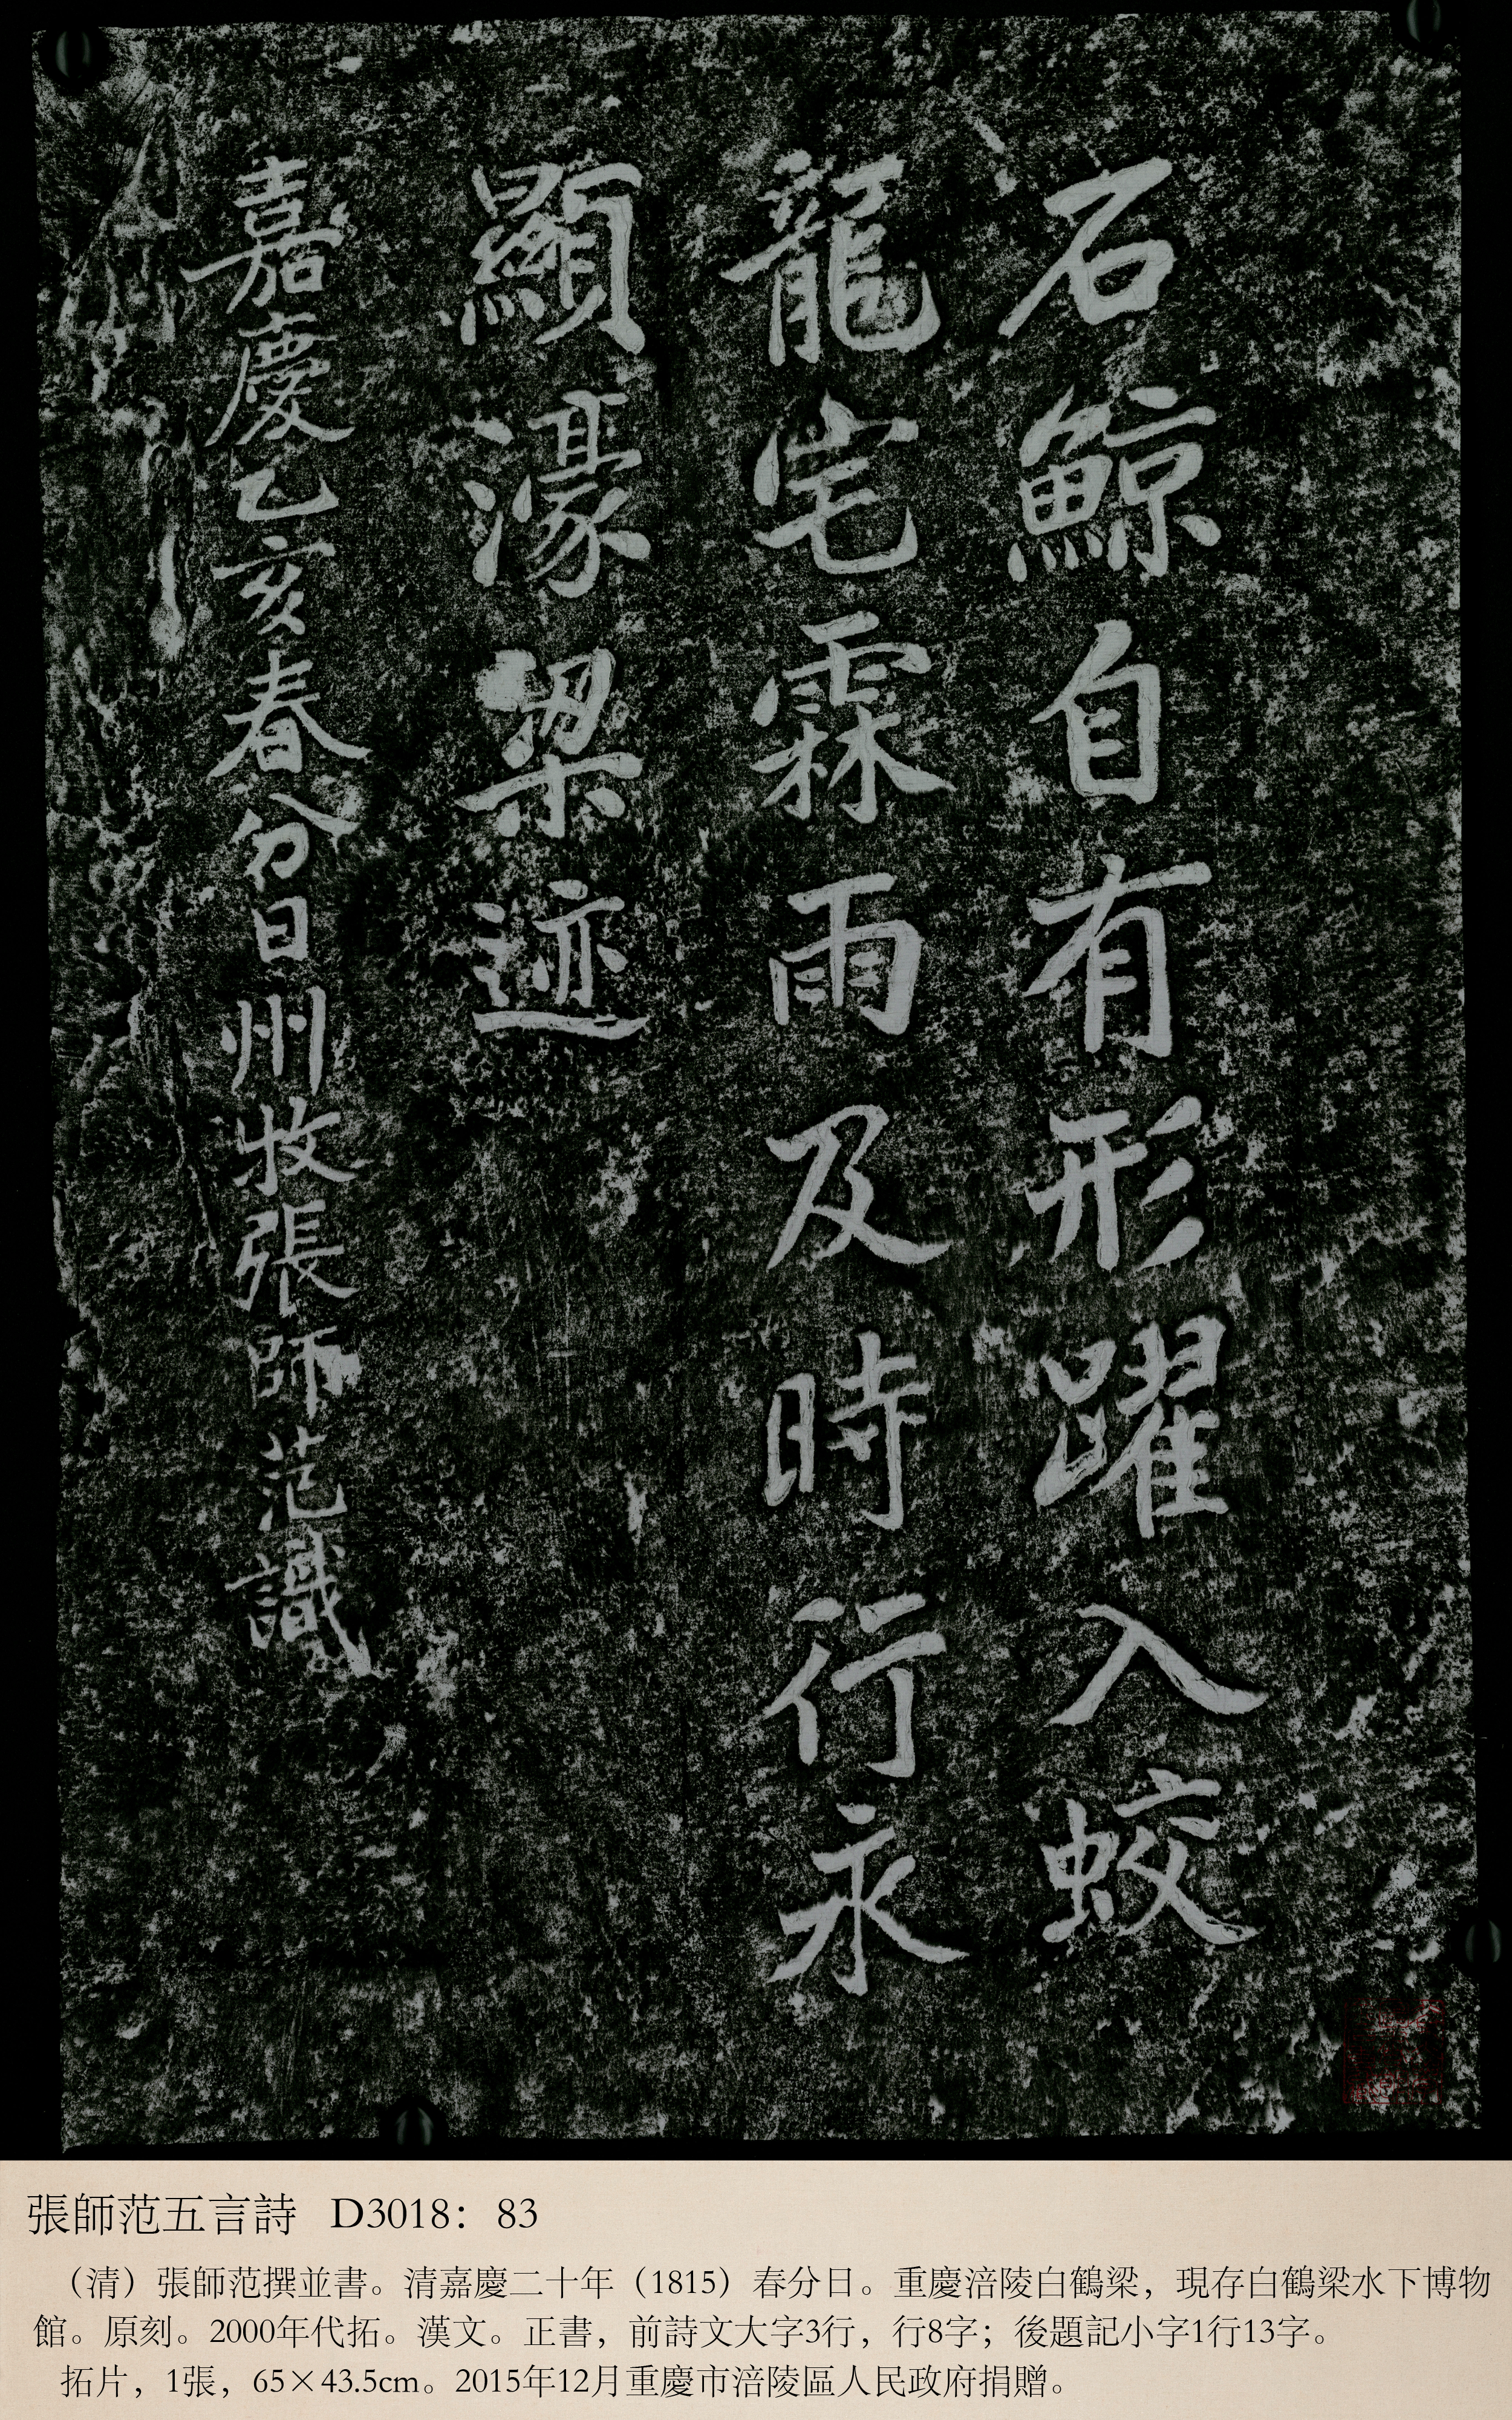 石鯨自有形躍入蛟
龍宅霖雨及時行永
顯濠梁迹
嘉慶乙亥春分日州牧張師范識
張師范五言詩 D3018：83
（清）張師范撰並書。清嘉慶二十年（1815）春分日。重慶涪陵白鶴梁，現存白鶴梁水下博物
館。原刻。2000年代拓。漢文。正書，前詩文大字3行，行8字；後題記小字1行13字。
拓片，1張，65×43.5cm。2015年12月重慶市涪陵區人民政府捐贈。